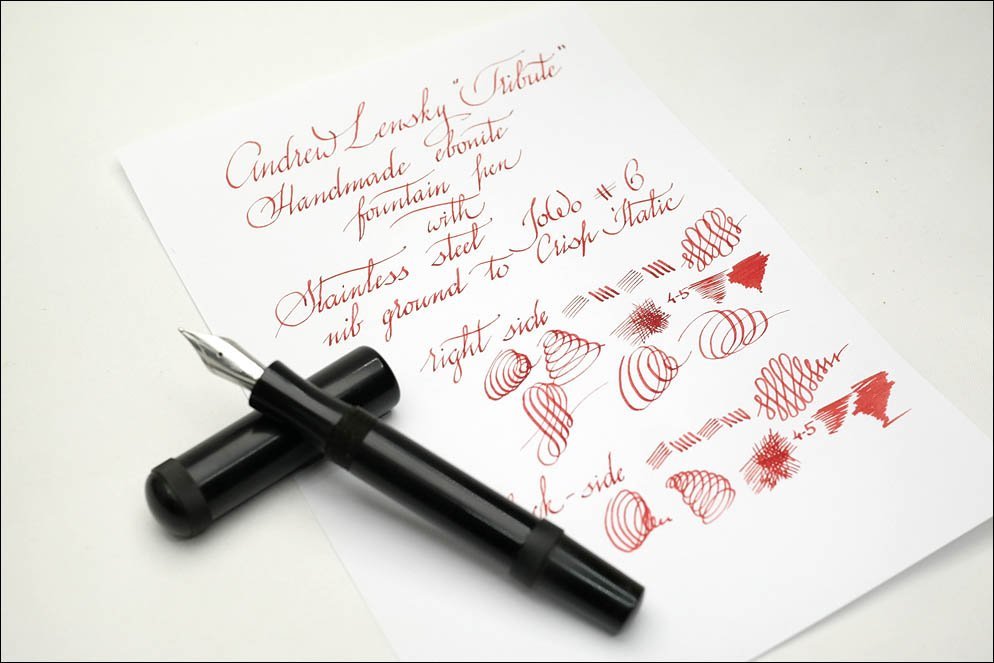 Andrew Lensky "Tribute"
Handmade ebonite
fountain pen
with
Stainless steel JoWo # 6
nib ground to Crisp Italic
right side
4-5
ck-side
4-5